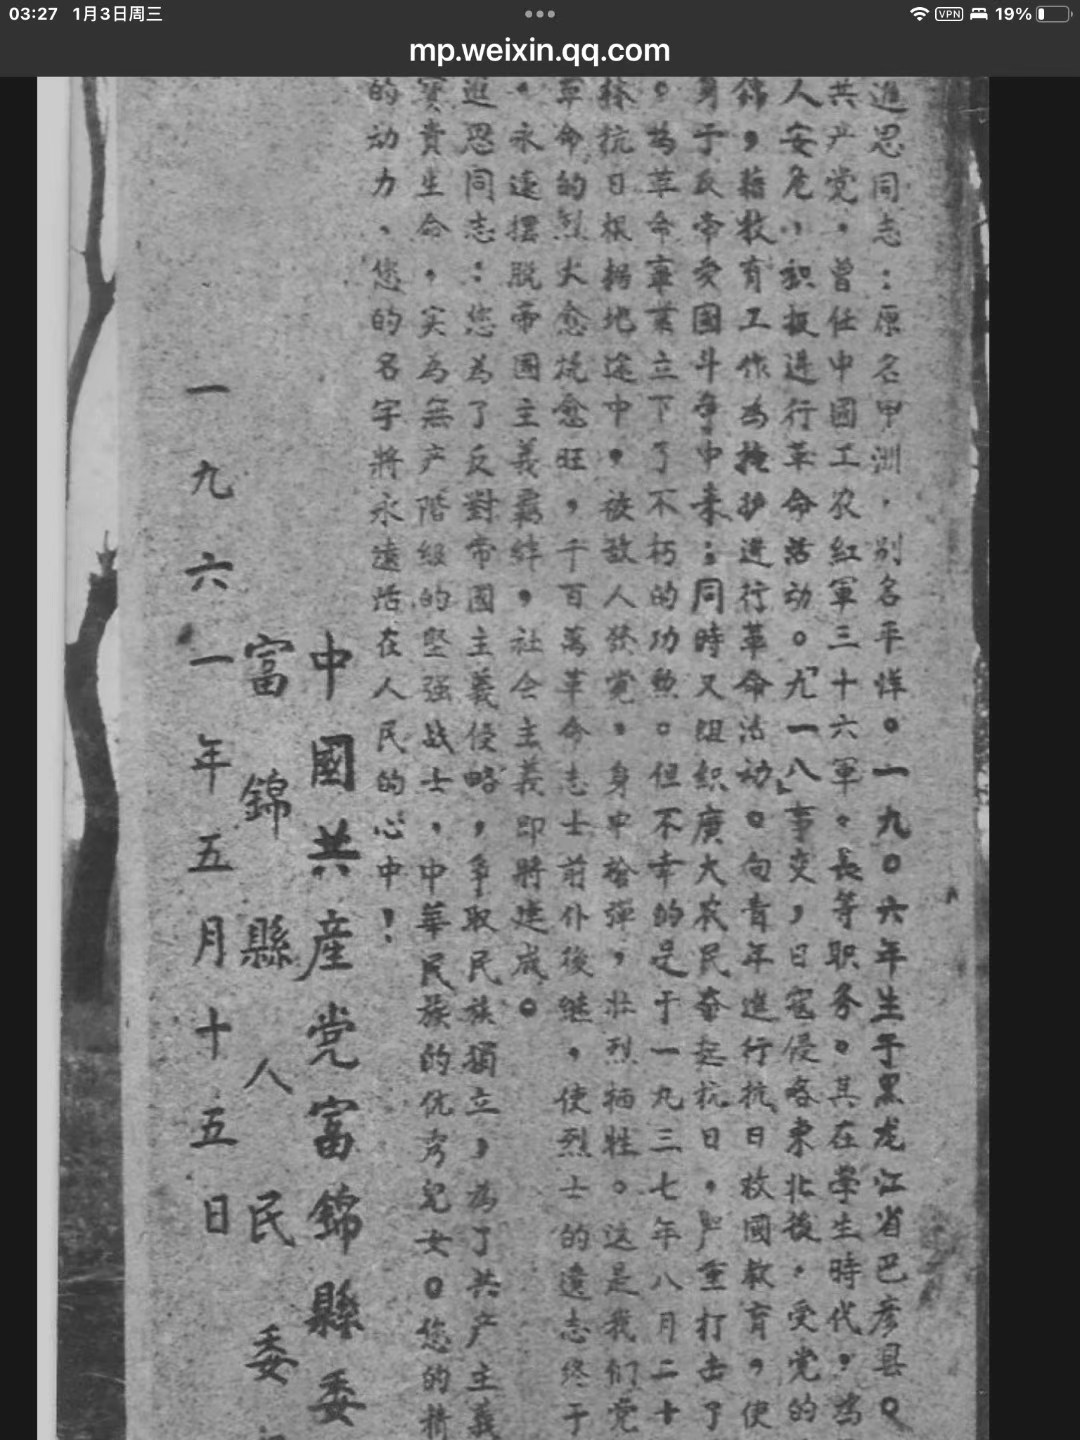 03:27 1月3日周三
VPN 19%
mp.weixin.qq.com
進思同志：原名甲洲，别名平洋。一九〇六年生于黑龙江省巴彦县。
共产党，曾任中國工农紅軍三十六軍。長等职务。其在学生時代，為
人安危，积极进行革命活动。「九一八」事变，日寇侵略東北後，受党的
錦，藉教育工作為掩护进行革命活动。向青年進行抗日救國教育，使
身于反帝爱国斗争中来；同時又組织廣大农民奋起抗日，严重打击了
。為革命事業立下了不朽的功勲。但不幸的是于一九三七年八月二十
抗日根据地途中，被敌人發觉，身中槍彈，壮烈牺牲。这是我们党
革命的烈火愈烧愈旺，千百萬革命志士前仆後继，使烈士的遺志终于
，永遠摆脱帝國主義羁绊，社会主義即將建成。
進思同志：您为了反對帝國主義侵略，争取民族獨立，為了共产主義
宝貴生命，实為無产階级的堅强战士，中華民族的优秀兒女。您的精
的动力，您的名字將永遠活在人民的心中！
中國共産党富錦縣委
富錦縣人民委
一九六一年五月十五日